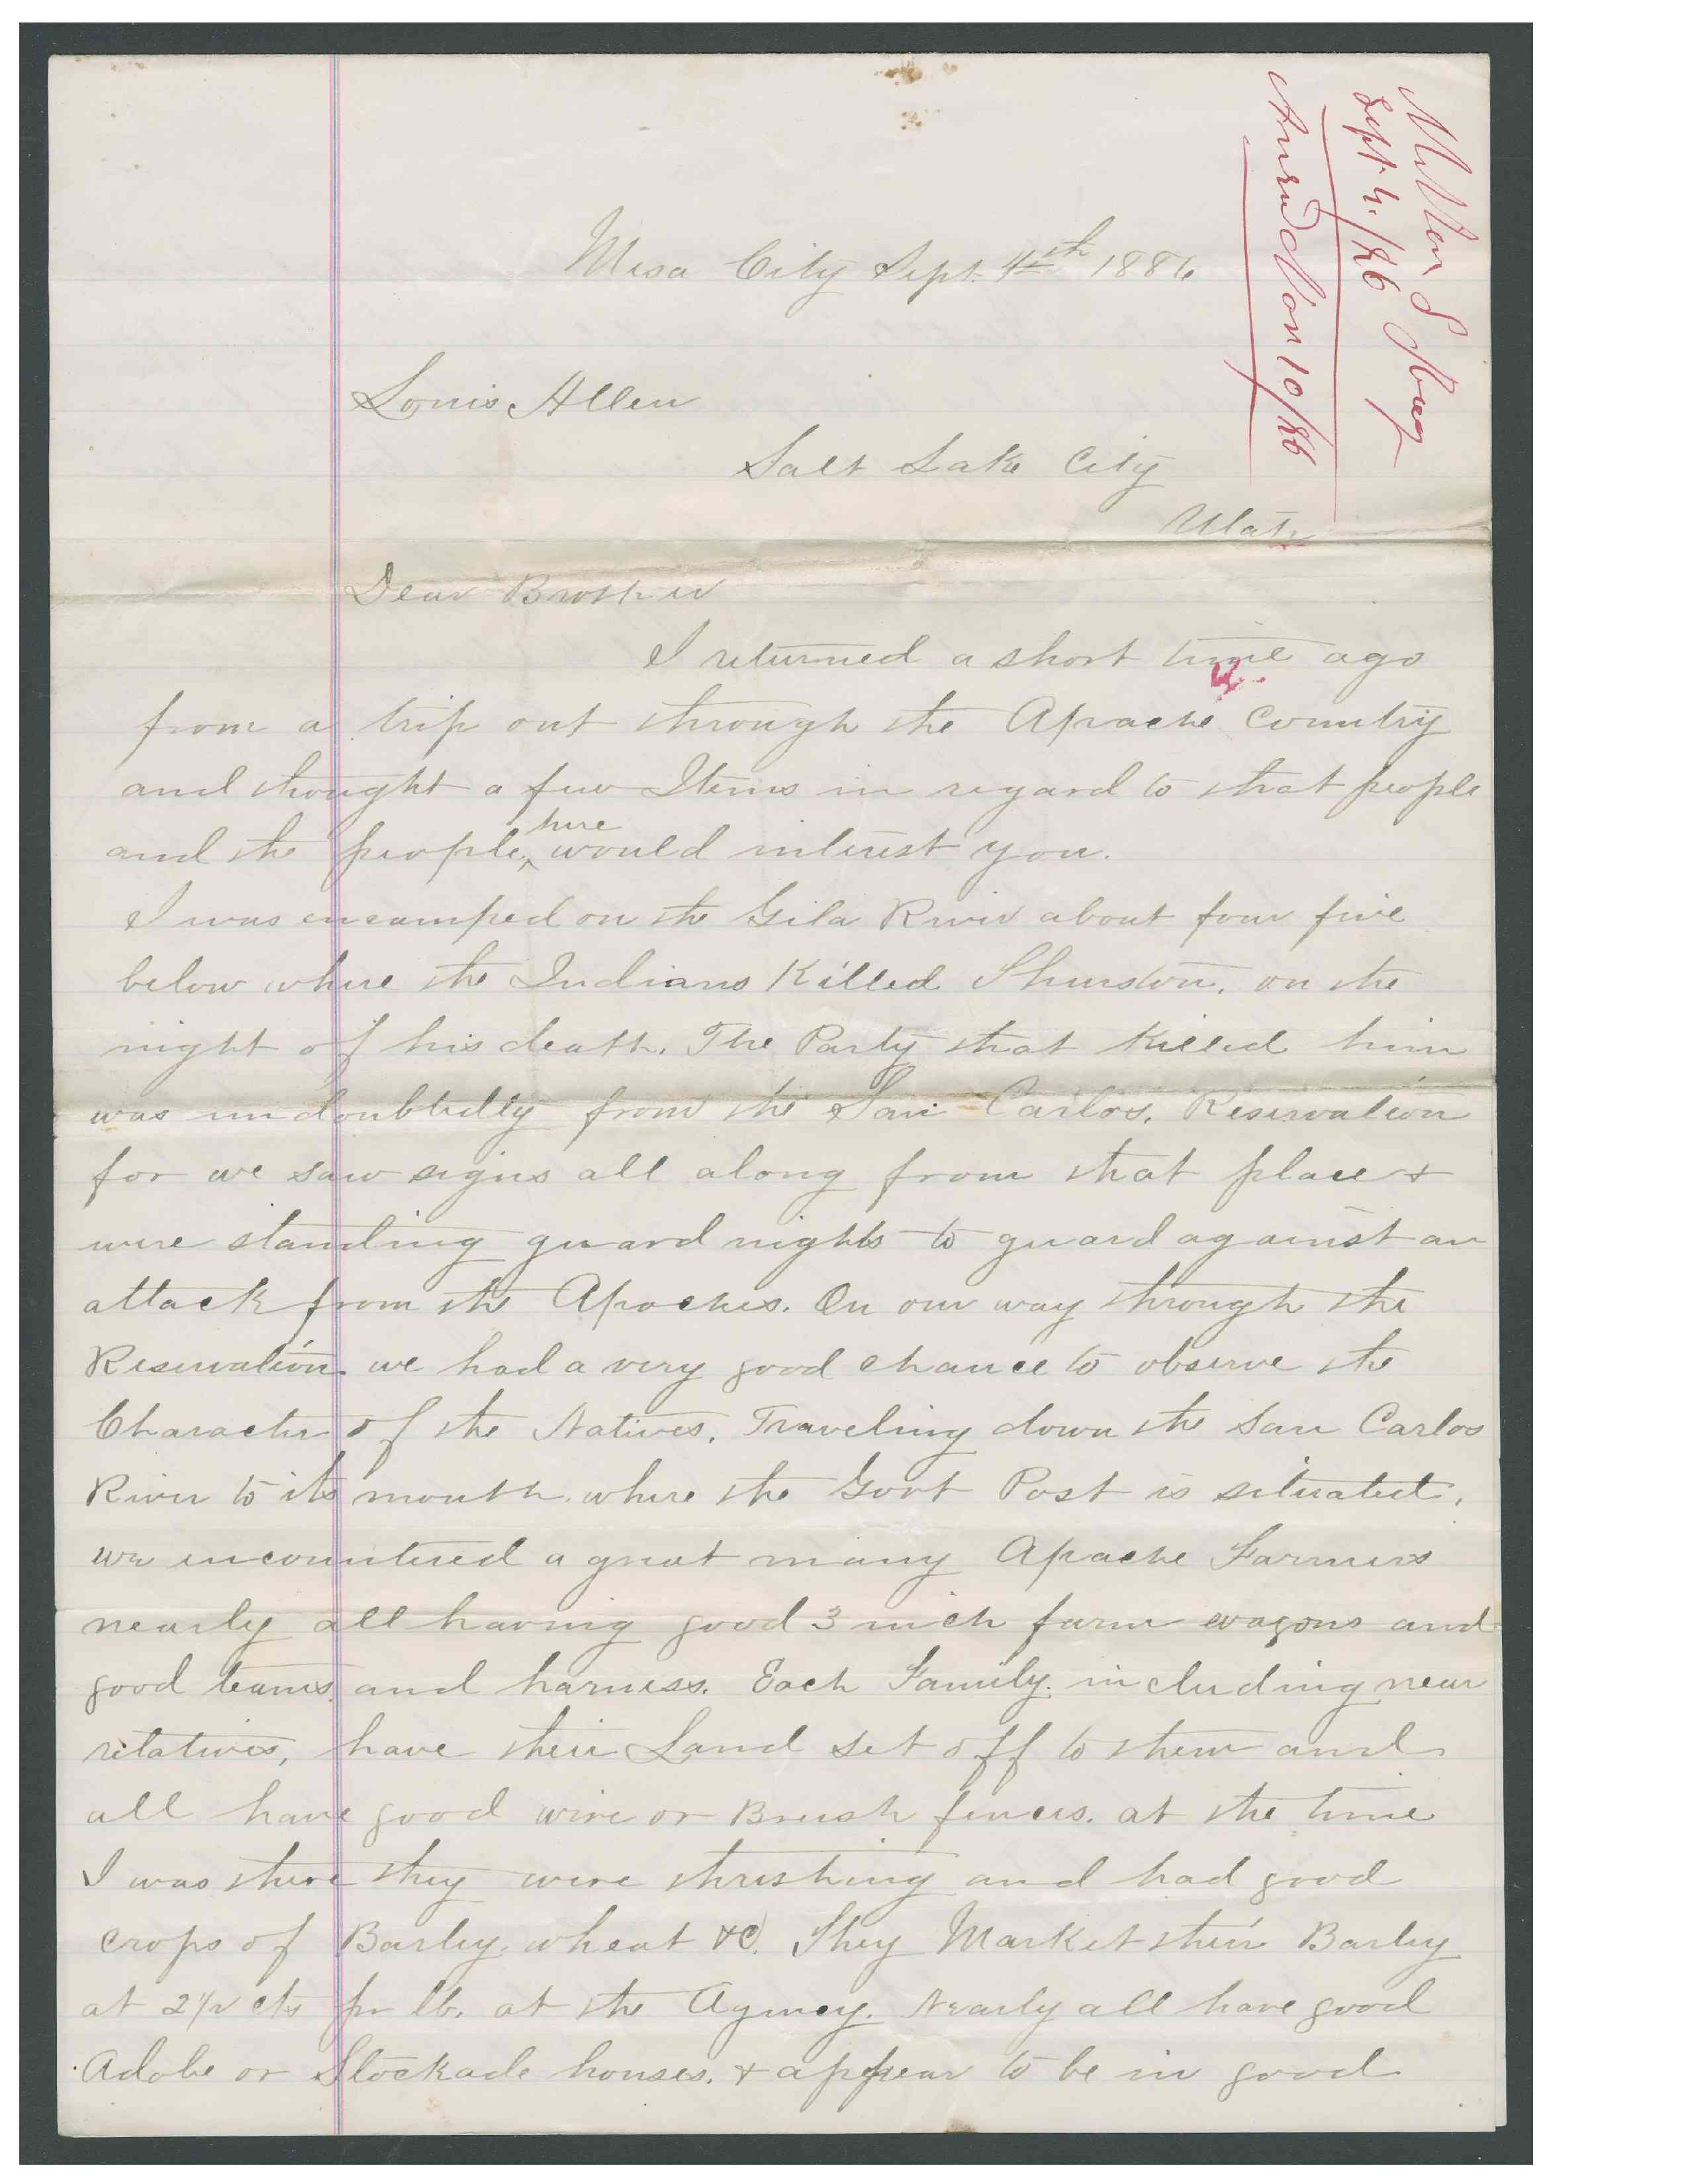 Mesa City Sept. 4th 1886
Louis Allen
Salt Lake City
Utah
Dear Brother
I returned a short time ago
from a trip out through the Apache Country
and thought a few Items in regard to that people
and the people, here would interest you.
I was encamped on the Gila River about four five
below where the Indians Killed Thurston, on the
night of his death. The Party that Killed him
was undoubtedly from the San Carlos, Reservation
for we saw signs all along from that place &
were standing guard nights to guard against an
attack from the Apaches. On our way through the
Reservation we had a very good chance to observe the
Character of the Natives. Traveling down the San Carlos
River to its mouth where the Govt Post is situated,
we encountered a great many Apache Farmers
nearly all having good 3 inch farm wagons and
good teams and harness. Each Family including near
relatives, have their Land set off to them and
all have good wire or Brush fences. at the time
I was there they were threshing and had good
crops of Barley, wheat &c. They Market their Barley
at 2 1/2 cts pr lb. at the Agency. Nearly all have good
Adobe or Stockade houses. & appear to be in good
Sept 4./86
10/86